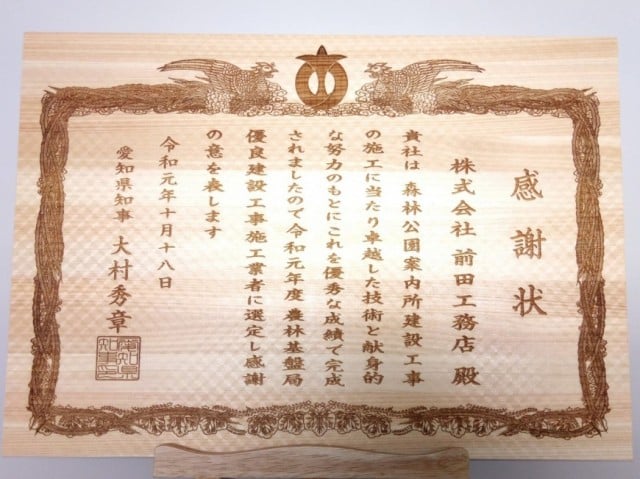 感謝状
株式会社 前田工務店 殿
貴社は 森林公園案内所建設工事
の施工に当たり卓越した技術と献身的
な努力のもとにこれを優秀な成績で完成
されましたので令和元年度 農林基盤局
優良建設工事施工業者に選定し感謝
の意を表します
令和元年十月十八日
愛知県知事 大村秀章